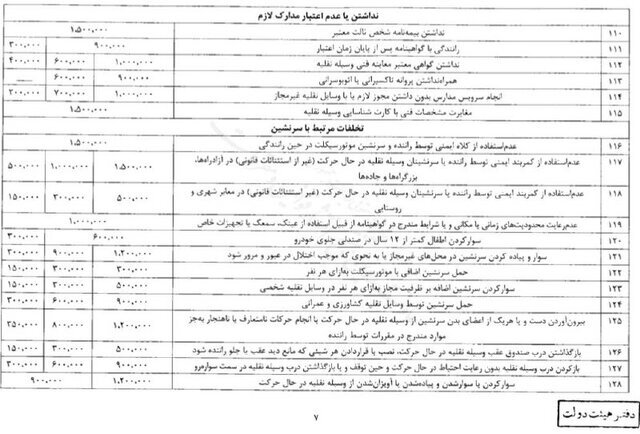 نداشتن یا عدم اعتبار مدارک لازم
۱۱۰ نداشتن بیمه‌نامه شخص ثالث معتبر ۱,۵۰۰,۰۰۰
۱۱۱ رانندگی با گواهینامه پس از پایان زمان اعتبار ۹۰۰,۰۰۰ ۳۰۰,۰۰۰
۱۱۲ نداشتن گواهی معتبر معاینه فنی وسیله نقلیه ۱,۰۰۰,۰۰۰ ۶۰۰,۰۰۰ ۴۰۰,۰۰۰
۱۱۳ همراه‌نداشتن پروانه تاکسیرانی یا اتوبوسرانی ۹۰۰,۰۰۰ ۶۰۰,۰۰۰
۱۱۴ انجام سرویس مدارس بدون داشتن مجوز لازم یا با وسایل نقلیه غیرمجاز ۱,۰۰۰,۰۰۰ ۷۰۰,۰۰۰ ۳۰۰,۰۰۰
۱۱۵ مغایرت مشخصات فنی با کارت شناسایی وسیله نقلیه ۱,۵۰۰,۰۰۰
تخلفات مرتبط با سرنشین
۱۱۶ عدم‌استفاده از کلاه ایمنی توسط راننده و سرنشین موتورسیکلت در حین رانندگی ۱,۵۰۰,۰۰۰
۱۱۷ عدم‌استفاده از کمربند ایمنی توسط راننده یا سرنشینان وسیله نقلیه در حال حرکت (غیر از استثنائات قانونی) در آزادراه‌ها، ۱,۵۰۰,۰۰۰ ۱,۰۰۰,۰۰۰ ۵۰۰,۰۰۰
بزرگراه‌ها و جاده‌ها
۱۱۸ عدم‌استفاده از کمربند ایمنی توسط راننده یا سرنشینان وسیله نقلیه در حال حرکت (غیر استثنائات قانونی) در معابر شهری و ۵۰۰,۰۰۰ ۳۰۰,۰۰۰ ۱۵۰,۰۰۰
روستایی
۱۱۹ عدم‌رعایت محدودیت‌های زمانی یا مکانی و یا شرایط مندرج در گواهینامه از قبیل استفاده از عینک، سمعک یا تجهیزات خاص ۱,۰۰۰,۰۰۰
۱۲۰ سوارکردن اطفال کمتر از ۱۲ سال در صندلی جلوی خودرو ۶۰۰,۰۰۰ ۳۰۰,۰۰۰
۱۲۱ سوار و پیاده کردن سرنشین در محل‌های غیرمجاز یا به نحوی که موجب اختلال در عبور و مرور شود ۱,۲۰۰,۰۰۰ ۹۰۰,۰۰۰ ۳۰۰,۰۰۰
۱۲۲ حمل سرنشین اضافی با موتورسیکلت به‌ازای هر نفر ۳۰۰,۰۰۰ ۳۰۰,۰۰۰ ۱۵۰,۰۰۰
۱۲۳ سوارکردن سرنشین اضافه بر ظرفیت مجاز به‌ازای هر نفر در وسایل نقلیه شخصی ۵۰۰,۰۰۰ ۳۰۰,۰۰۰ ۱۵۰,۰۰۰
۱۲۴ حمل سرنشین توسط وسایل نقلیه کشاورزی و عمرانی ۹۰۰,۰۰۰ ۶۰۰,۰۰۰ ۳۰۰,۰۰۰
۱۲۵ بیرون‌آوردن دست و یا هریک از اعضای بدن سرنشین از وسیله نقلیه در حال حرکت یا انجام حرکات نامتعارف یا ناهنجار به‌جز ۱,۲۰۰,۰۰۰ ۸۰۰,۰۰۰ ۳۵۰,۰۰۰
موارد مندرج در مقررات توسط راننده
۱۲۶ بازگذاشتن درب صندوق عقب وسیله نقلیه در حال حرکت، نصب یا قراردادن هر شیئی که مانع دید عقب یا جلو راننده شود ۵۰۰,۰۰۰ ۳۰۰,۰۰۰ ۱۵۰,۰۰۰
۱۲۷ بازکردن درب وسیله نقلیه بدون رعایت احتیاط در حال حرکت و حین توقف و یا بازگذاشتن درب وسیله نقلیه در سمت سواره‌رو ۹۰۰,۰۰۰ ۶۰۰,۰۰۰ ۳۰۰,۰۰۰
۱۲۸ سوارکردن یا سوارشدن و پیاده‌شدن یا آویزان‌شدن از وسیله نقلیه در حال حرکت ۱,۲۰۰,۰۰۰ ۹۰۰,۰۰۰
۷
دفتر هیئت دولت